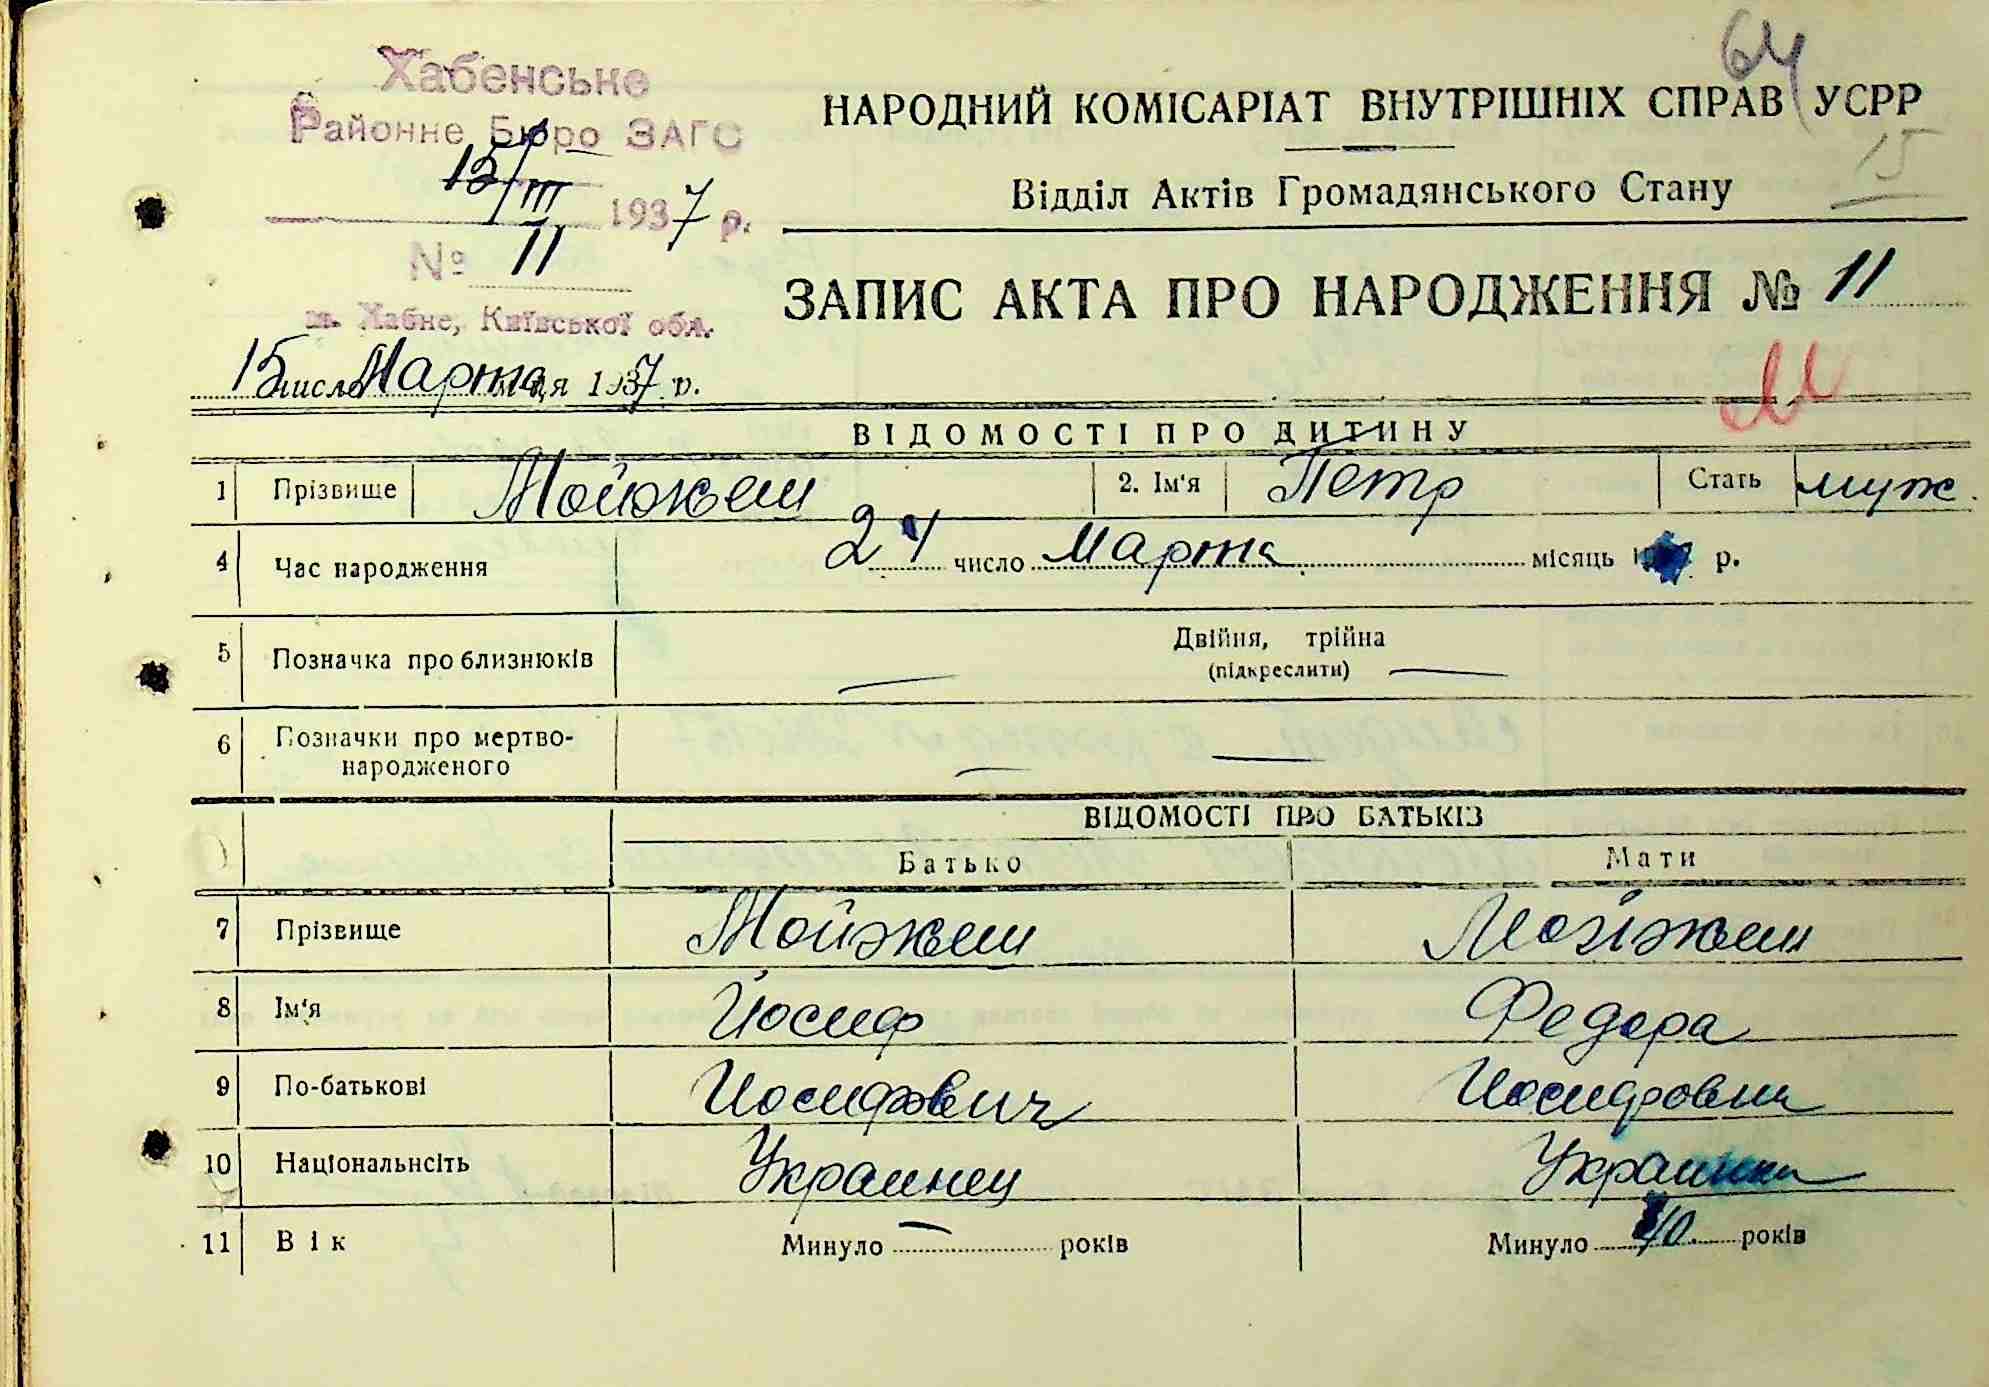 64
Хабенське
Районне Бюро ЗАГС
15/III 1937 р.
№ 11
м. Хабне, Київської обл.
НАРОДНИЙ КОМІСАРІАТ ВНУТРІШНІХ СПРАВ УСРР
15
Відділ Актів Громадянського Стану
ЗАПИС АКТА ПРО НАРОДЖЕННЯ № 11
15 число Марта м-ця 1937 р.
М
ВІДОМОСТІ ПРО ДИТИНУ
1 Прізвище Мойжеш 2. Ім'я Петр Стать муж.
4 Час народження 24 число Марта місяць р.
5 Позначка про близнюків Двійня, трійна
(підкреслити)
6 Позначки про мертво-
народженого
ВІДОМОСТІ ПРО БАТЬКІВ
Батько Мати
7 Прізвище Мойжеш Мойжеш
8 Ім'я Йосиф Федора
9 По-батькові Иосифович Иосифовна
10 Національнсіть Украинец Украинка
11 Вік Минуло — років Минуло 40 років